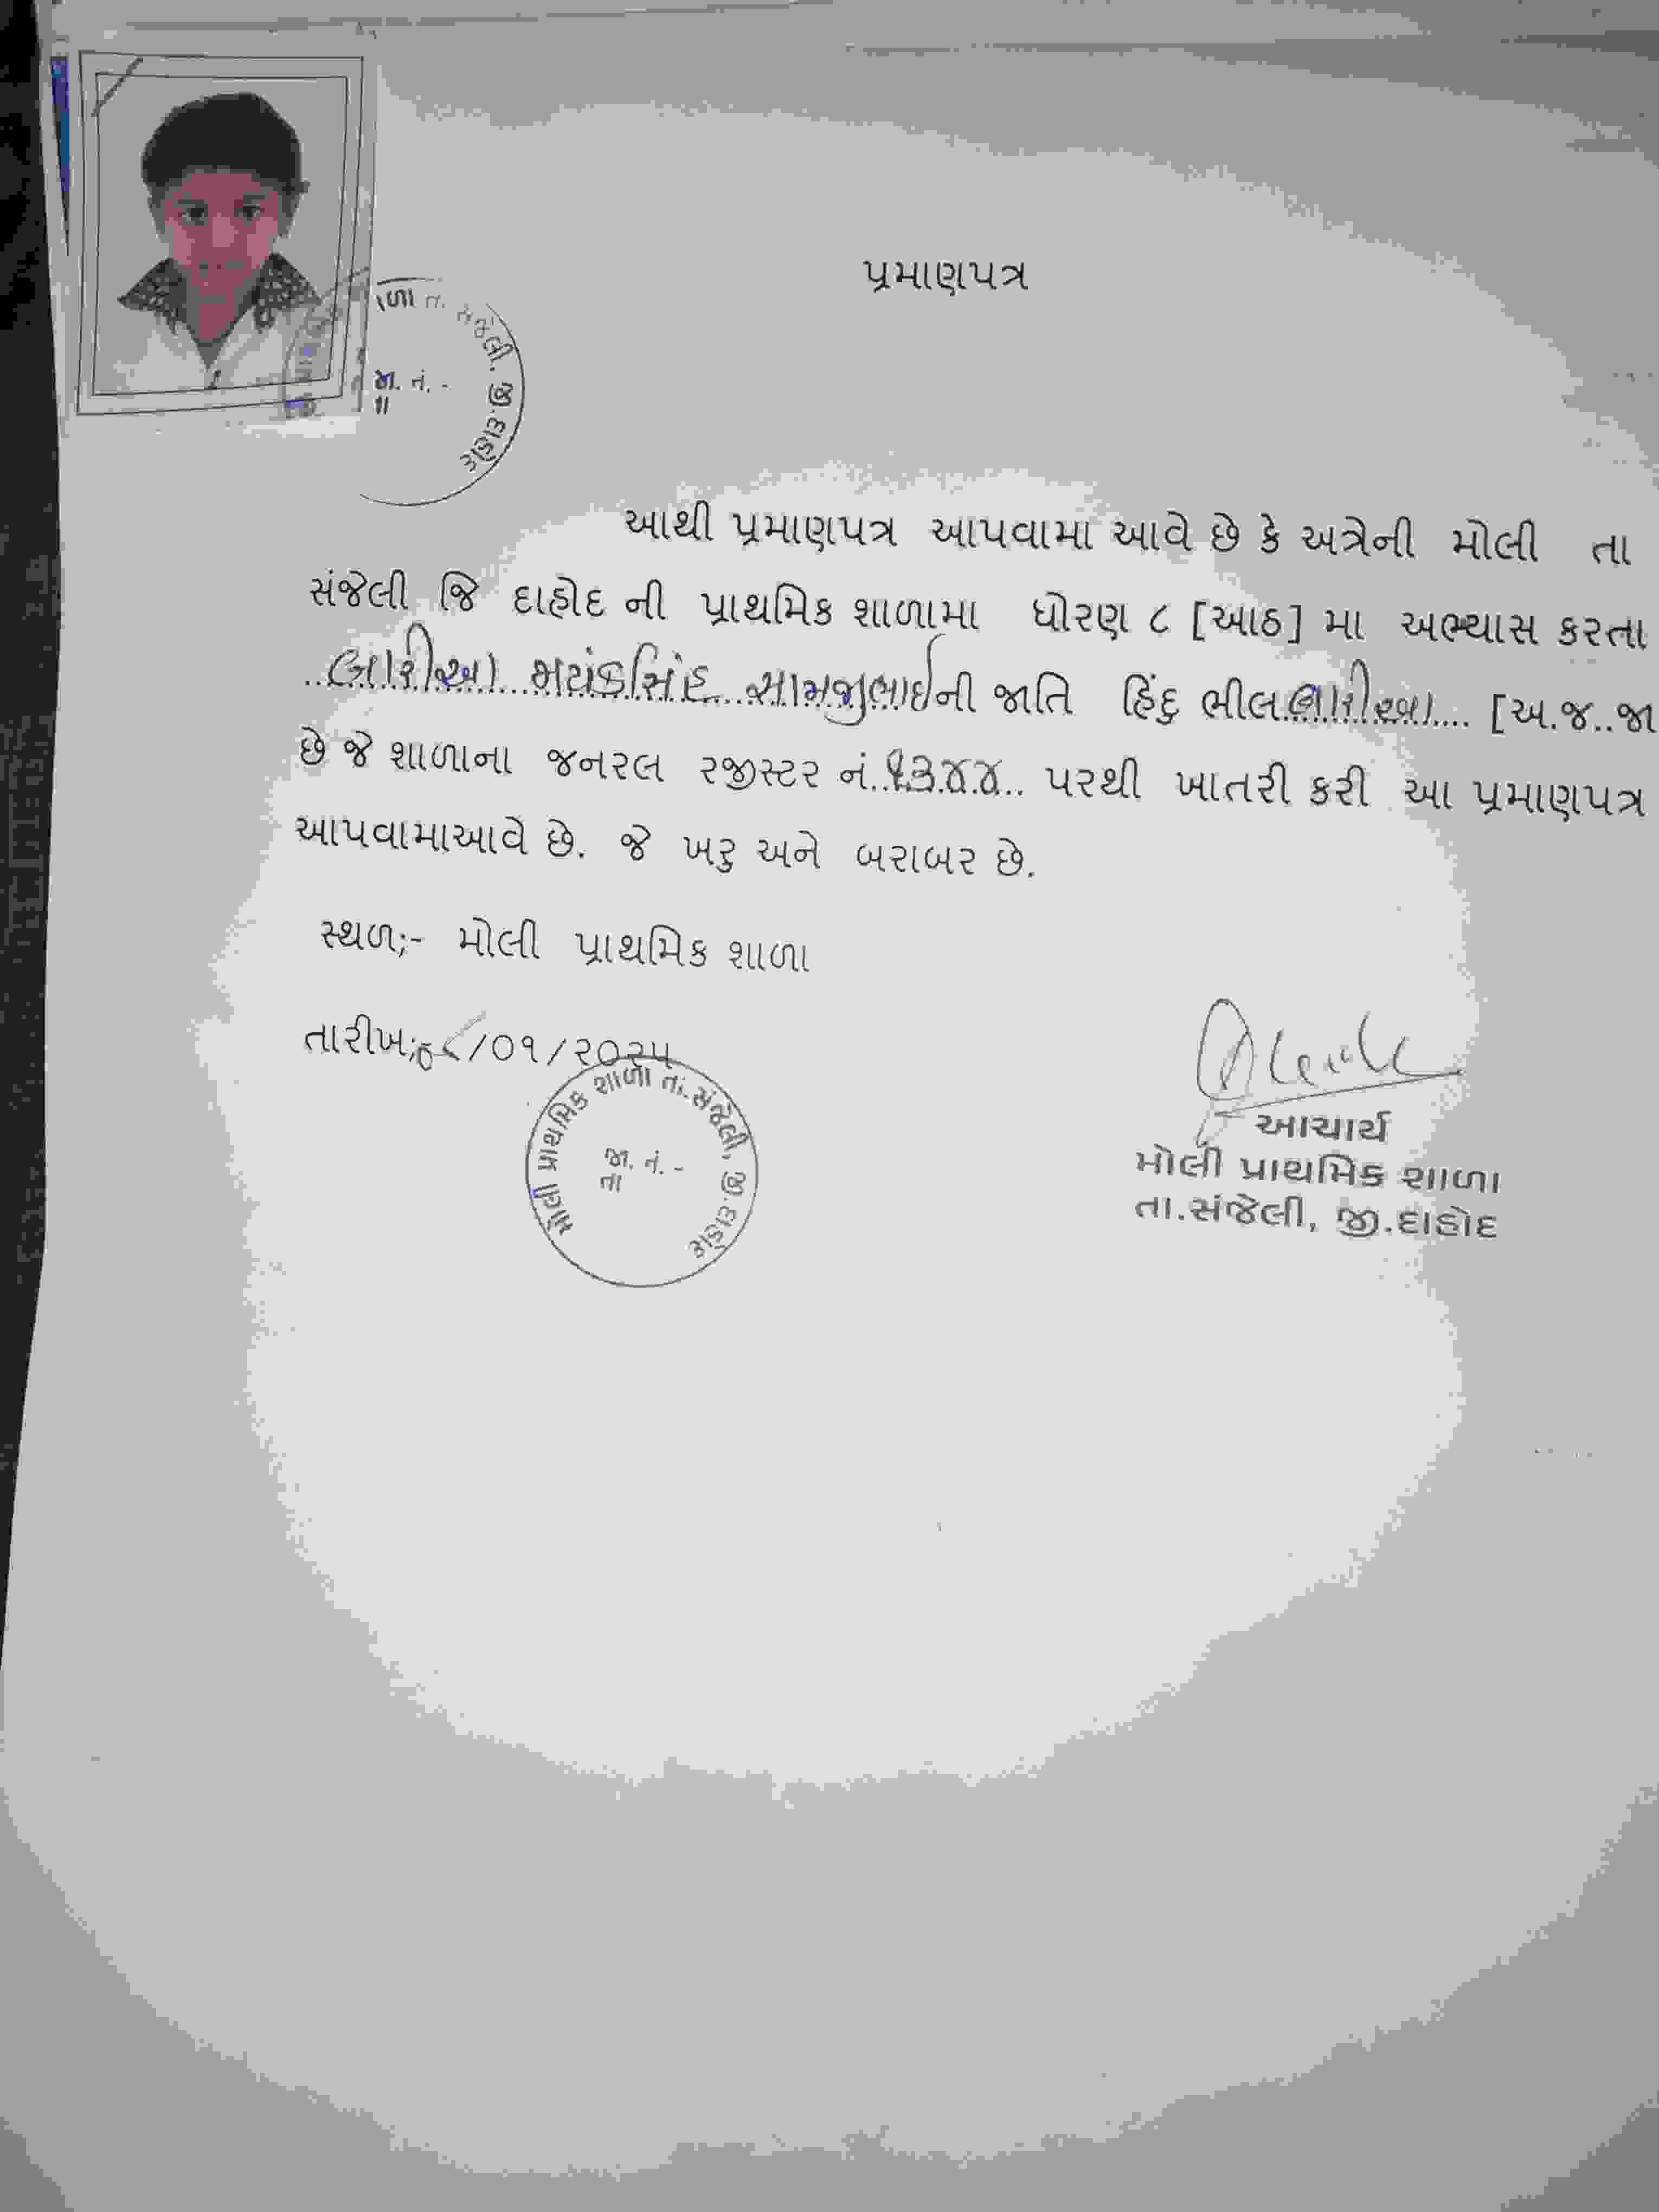 પ્રમાણપત્ર
ળા તા. સંજેલી. જી.દાહોદ
જા. નં. -
તા
આથી પ્રમાણપત્ર આપવામા આવે છે કે અત્રેની મોલી તા
સંજેલી જિ દાહોદ ની પ્રાથમિક શાળામા ધોરણ ૮ [આઠ] મા અભ્યાસ કરતા
..બારીઆ મયંકસિંહ સામજીભાઇની જાતિ હિંદુ ભીલ બારીઆ.... [અ.જ..જા
છે જે શાળાના જનરલ રજીસ્ટર નં..૧૩૪૪.. પરથી ખાતરી કરી આ પ્રમાણપત્ર
આપવામાઆવે છે. જે ખરુ અને બરાબર છે.
સ્થળ;- મોલી પ્રાથમિક શાળા
તારીખ;૦૮/૦૧/૨૦૨૫
મોલી પ્રાથમિક શાળા તા.સંજેલી, જી.દાહોદ
જા. નં. -
તા
આચાર્ય
મોલી પ્રાથમિક શાળા
તા.સંજેલી, જી.દાહોદ